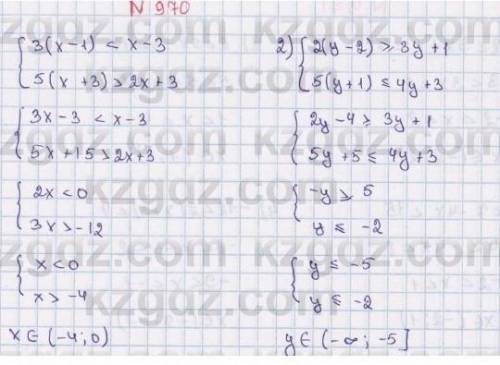 N 970
{ 3(x-1) < x-3
5(x+3) > 2x+3
{ 3x-3 < x-3
5x+15 > 2x+3
{ 2x < 0
3x > -12
{ x < 0
x > -4
x ∈ (-4; 0)
2) { 2(y-2) ≥ 3y+1
5(y+1) ≤ 4y+3
{ 2y-4 ≥ 3y+1
5y+5 ≤ 4y+3
{ -y ≥ 5
y ≤ -2
{ y ≤ -5
y ≤ -2
y ∈ (-∞; -5]
kzgdz.com kzgdz.com
kzgdz.com kzgdz.com
kzgdz.com kzgdz.com
kzgdz.com kzgdz.com